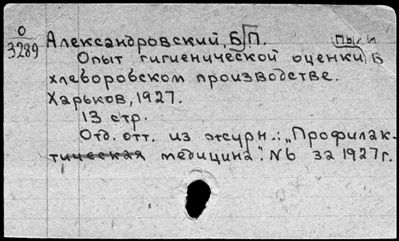 О
3289
Александровский, Б. П.
Опыт гигиенической оценки пыли в
хлеборовском производстве.
Харьков, 1927.
13 стр.
Отд. отт. из журн.: „Профилак-
тическая медицина": №6 за 1927г.